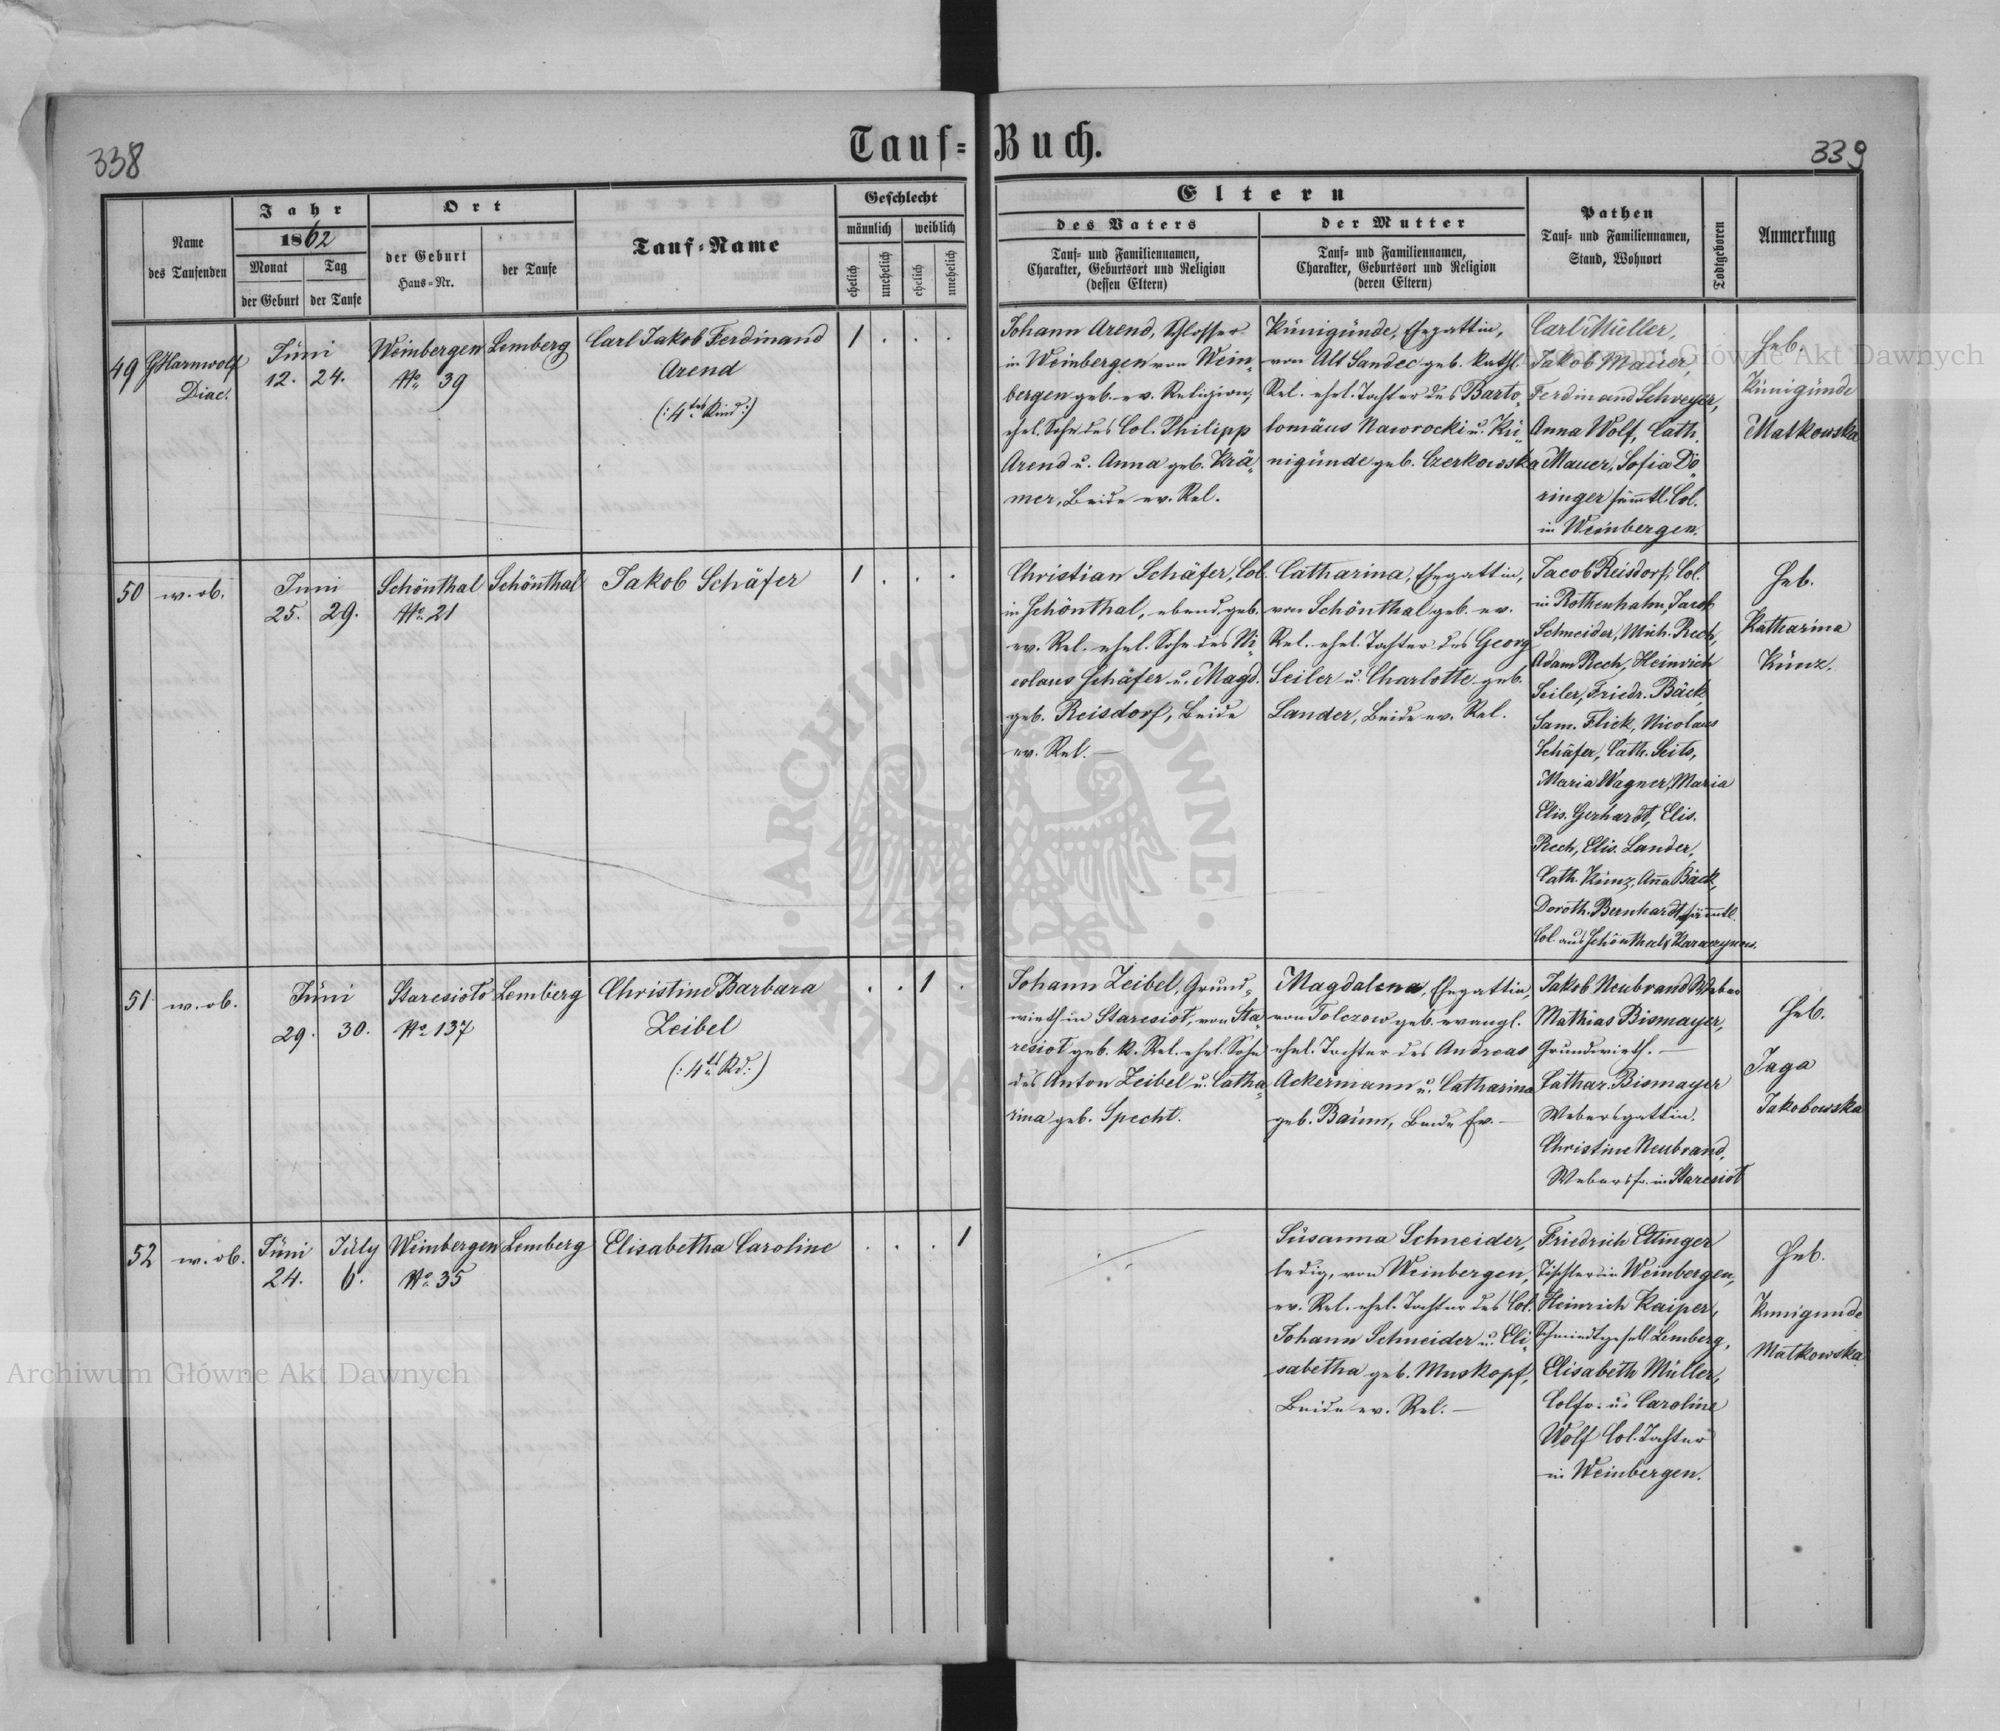 338
Tauf-Buch.
339
Name
des Taufenden
Jahr
1862
Monat
Tag
der Geburt
der Taufe
Ort
der Geburt
Haus-Nr.
der Taufe
Tauf-Name
Geschlecht
männlich
weiblich
ehelich
unehelich
ehelich
unehelich
Eltern
des Vaters
Tauf- und Familiennamen,
Charakter, Geburtsort und Religion
(dessen Eltern)
der Mutter
Tauf- und Familiennamen,
Charakter, Geburtsort und Religion
(deren Eltern)
Pathen
Tauf- und Familiennamen,
Stand, Wohnort
Todtgeboren
Anmerkung
49
Harnwolf
Diac.
Jüni
12. 24.
Weinbergen
No. 39
Lemberg
Carl Jakob Ferdinand
Arend
(: 4tes Kind :)
1 . . .
Johann Arend, Schlosser
in Weinbergen von Wein-
bergen geb. ev. Religion,
ehel. Sohn des Col. Philipp
Arend u. Anna geb. Krä-
mer, Beide ev. Rel.
Künigünde, Ehegattin,
von Alt Sandec geb. kathl.
Rel. ehel. Tochter des Barto-
lomäus Nawrocki u. Kü-
nigünde geb. Czerkowska
Carl Müller,
Jakob Mauer,
Ferdinand Schreyer,
Anna Wolf, Cath.
Mauer, Sofia Dö
ringer sämmtl. Col.
in Weinbergen.
Heb.
Künigünde
Matkowska
50
w. ob.
Juni
25. 29.
Schönthal
No. 21
Schönthal
Jakob Schäfer
1 . . .
Christian Schäfer, Col.
in Schönthal, ebend. geb.
ev. Rel. ehel. Sohn des Ni-
colaus Schäfer u. Magd.
geb. Reisdorf, Beide
ev. Rel. —
Catharina, Ehegattin,
von Schönthal geb. ev.
Rel. ehel. Tochter des Georg
Seiler u. Charlotte geb.
Lander, Beide ev. Rel.
Jacob Reisdorf, Col.
in Rothenhahn, Jacob
Schneider, Mich. Rech,
Adam Rech, Heinrich
Seiler, Friedr. Bäck,
Sam. Flick, Nicolaus
Schäfer, Cath. Seits,
Maria Wagner, Maria
Elis. Gerhardt, Elis.
Rech, Elis. Lander,
Cath. Künz, Anna Bäck,
Doroth. Bernhardt, sämmtl.
Col. aus Schönthal
Heb.
Katharina
Künz.
51
w. ob.
Jüni
29. 30.
Staresioto
No. 137
Lemberg
Christine Barbara
Zeibel
(: 4tes Kd :)
. . 1 .
Johann Zeibel, Grund-
wirth in Staresiot, von Sta-
resiot geb. k. Rel. ehel. Sohn
des Anton Zeibel u. Catha-
rina geb. Specht.
Magdalena, Ehegattin,
von Tolczow geb. evangl.
ehel. Tochter des Andreas
Ackermann u. Catharina
geb. Baüm, Beide Ev. —
Jakob Neubrand Weber
Mathias Bismayer,
Grundwirth. —
Cathar. Bismayer
Webersgattin,
Christine Neubrand,
Webersfr. in Staresiot
Heb.
Jaga
Jakobowska
52
w. ob.
Jüni
24.
Jüly
6.
Weinbergen
No. 35
Lemberg
Elisabetha Caroline
. . . 1
Süsanna Schneider,
ledig, von Weinbergen,
ev. Rel. ehel. Tochter des Col.
Johann Schneider u. Eli-
sabetha geb. Muskopf,
Beide ev. Rel. —
Friedrich Ettinger
Tischler in Weinbergen,
Heinrich Kaiper,
Schmiedtgesell Lemberg,
Elisabeth Müller,
Colfr. u. Caroline
Wolf Col. Tochter
in Weinbergen.
Heb.
Kunigunde
Matkowska
Archiwum Główne Akt Dawnych
Archiwum Główne Akt Dawnych